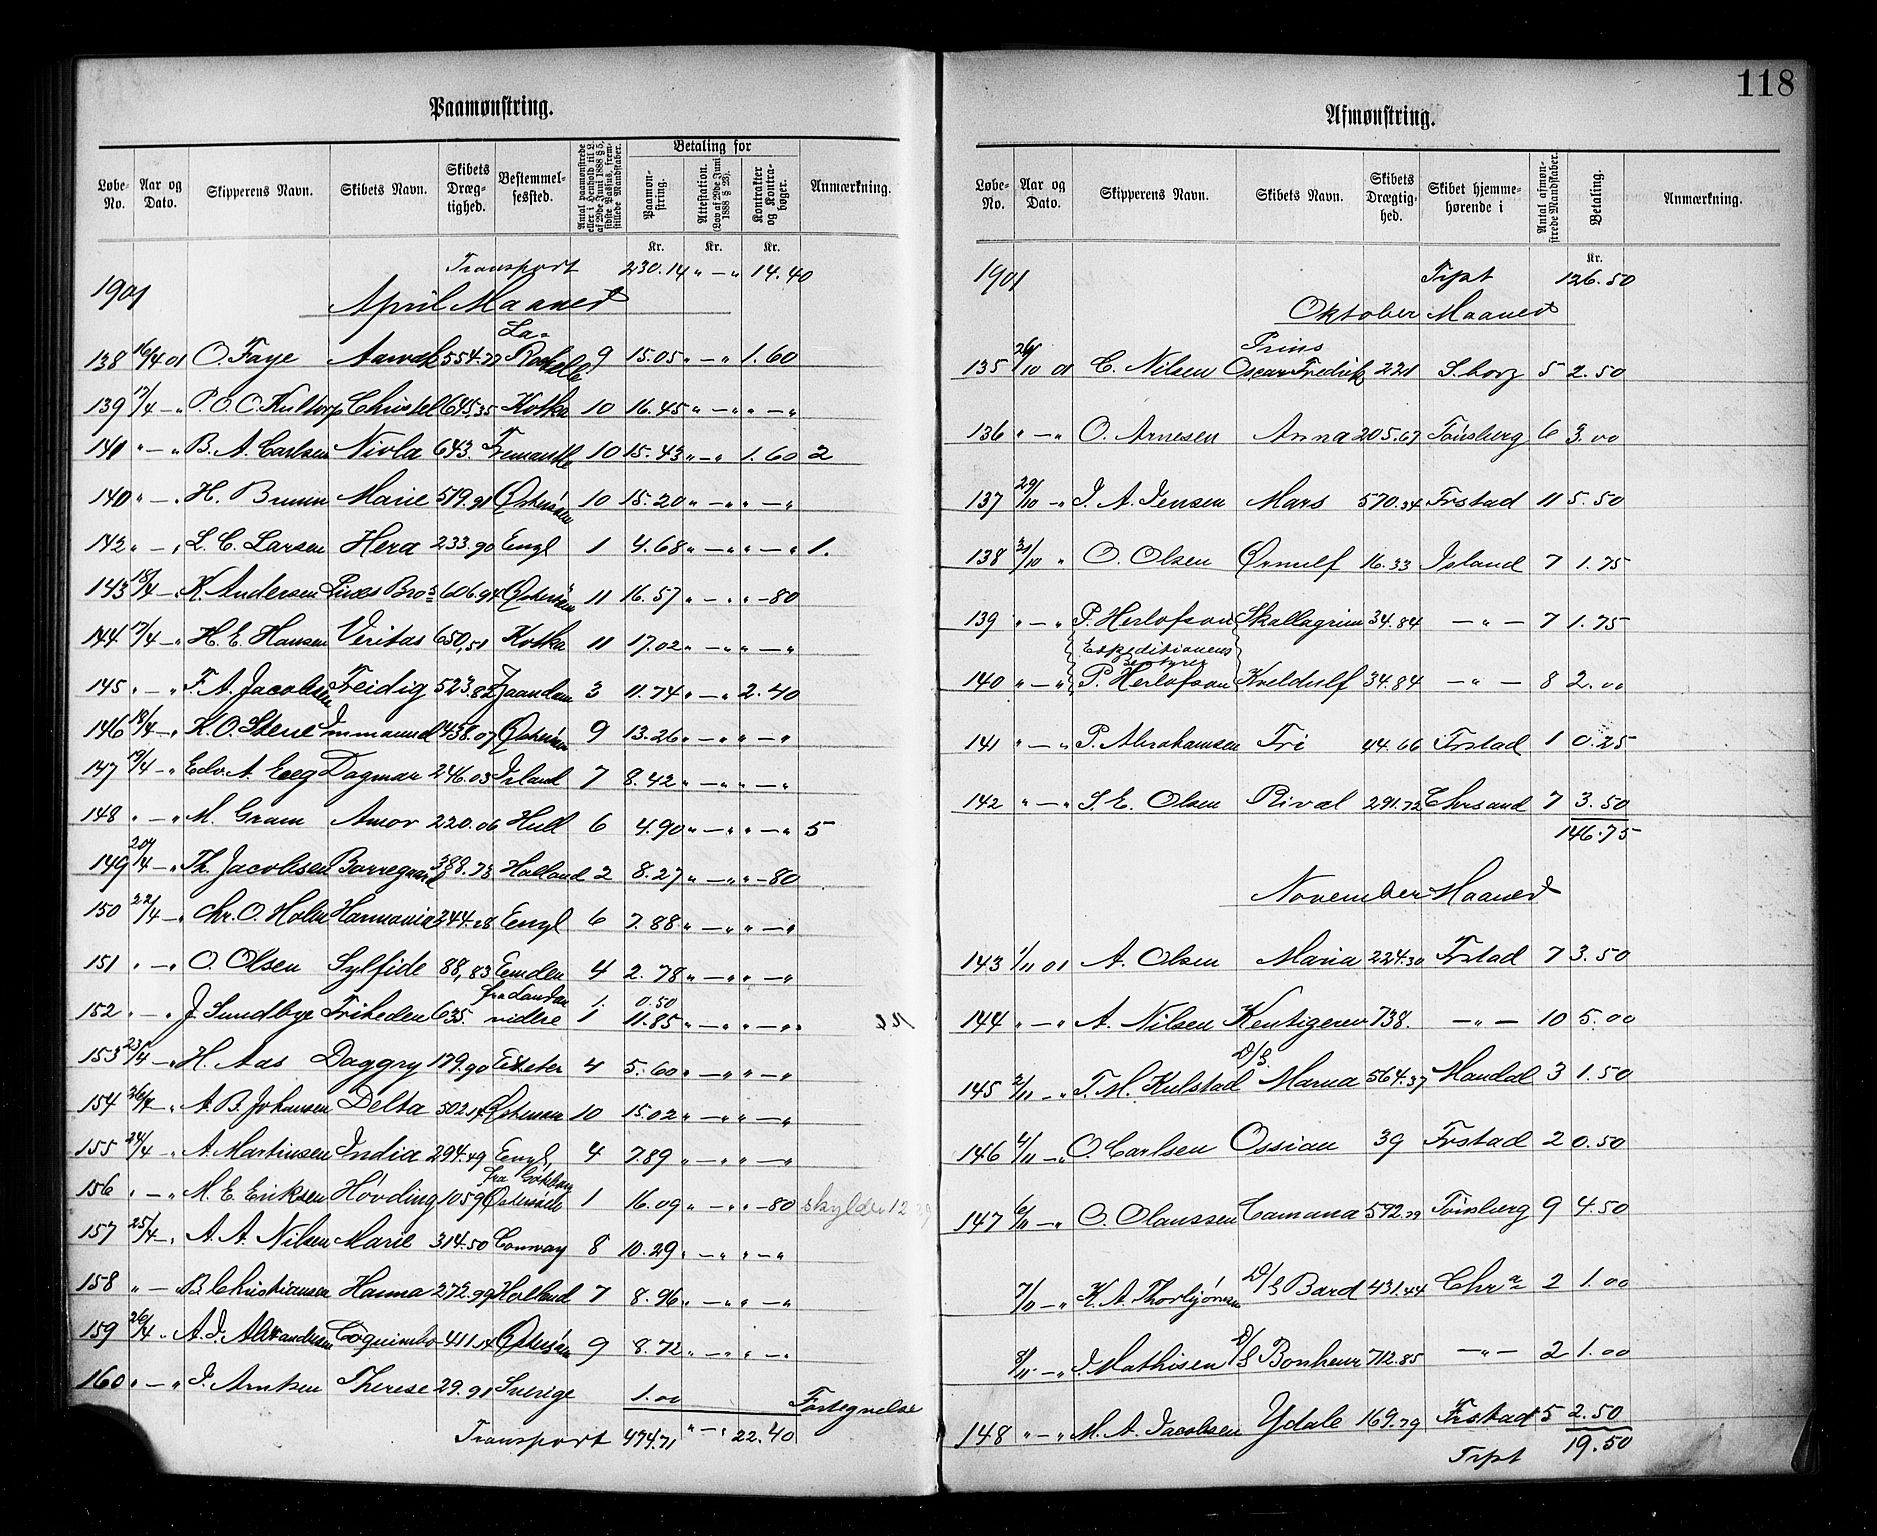 118
Paamønstring.
Løbe-No. Aar og Dato. Skipperens Navn. Skibets Navn. Skibets Dræg-tighed. Bestemmel-sessted. Antal paamønstrede eller i Henhold til L. af 29de Juni 1888 § 5, sidste Passus, frem-stillede Mandskaber. Betaling for Paamøn-string. Attestation. (Lov af 29de Juni 1888 § 28). Kontrakter og Kontra-bøger. Anmærkning.
Kr. Kr. Kr.
Transport 230.14 " — " 14.40
1901 April Maaned
138 16/4 01 O. Faye Aarvak 554.77 La Rochelle 9 15.05 " — " 1.60
139 17/4 — " P. O. C. Kultorp Christel 645,35 Kotka 10 16.45 " — " " — "
141 " — " B. A. Carlsen Niola 643. Fremantle 10 15.43 " — " 1.60 2
140 " — " H. Bruun Marie 519.91 Østersøen 10 15.20 " — " " — "
142 " — " L. C. Larsen Hera 233.90 Engl 1 4.68 " — " " — " 1.
143 18/4 — " K. Andersen Pives Bros 606.94 Østersøen 11 16.57 " — " " — 80
144 17/4 — " H. E. Hansen Veritas 650,51 Kotka 11 17.02 " — " " — "
145 " — " F. A. Jacobsen Freidig 523.82 Zaandam 3 11.74 " — " 2.40
146 18/4 — " K. O. Stene Immanuel 438.07 Østersøen 9 13.26 " — " " — "
147 19/4 — " Edv. A. Eeg Dagmar 246.03 Irland 7 8.42 " — " " — "
148 " — " M. Gram Amor 220.06 Hull 6 4.90 " — " " — " 5
149 20/4 — " Th. Jacobsen Borregaard 388.73 Holland 2 8.27 " — " " — 80
150 22/4 — " Chr. O. Holm Harmonia 244.28 Engl 6 7.88 " — " " — "
151 " — " O. Olsen Sylfide 88,83 Emden 4 2.78 " — " " — "
fra London 1. 0.50
152 " — " J. Sundbye Friheden 635. videre 1 11.85 " — " " — "
153 23/4 — " H. Aas Daggry 179.90 Exeter 4 5.60 " — " " — "
154 26/4 — " A. B. Johansen Delta 502.14 Østersøen 10 15.02 " — " " — "
155 24/4 — " A. Martinsen India 294.49 Engl 4 7.89 " — " " — "
156 " — " M. E. Eriksen Høvding 1059 fra Østersøen 1 16.09 " — " " — 80 skylder 12
157 25/4 — " A. A. Nilsen Marie 314.50 Conway 8 10.29 " — " " — "
158 " — " B. Christiansen Hanna 272.99 Holland 7 8.96 " — " " — "
159 26/4 — " A. J. Alexandersen Coquimbo 411.14 Østersøen 9 8.72 " — " " — "
160 " — " J. Arntsen Therese 29.91 Sverige 1.00 Fortegnelse
Transport 474.71 " — " 22.40
Afmønstring.
Løbe-No. Aar og Dato. Skipperens Navn. Skibets Navn. Skibets Drægtig-hed. Skibet hjemme-hørende i Antal afmøn-strede Mandskaber. Betaling. Anmærkning.
Kr.
1901 Trpt 126.50
Oktober Maaned
135 26/10 01 C. Nilsen Prins Oscar Fredrik 221 S.borg 5 2.50
136 " — " O. Arnesen Anna 205.67 Tønsberg 6 3.00
137 29/10 — " J. A. Jensen Mars 570.34 Frstad 11 5.50
138 31/10 " O. Olsen Ørnulf 16.33 Island 7 1.75
139 " — " P. Herlofson Skallagrim 34.84 — " — 7 1.75
Expeditionens bestyrer
140 " — " P. Herlofson Kveldulf 34.84 — " — 8 2.00
141 " — " P. Abrahamsen Fri 44.66 Frstad 1 0.25
142 " — " S. E. Olsen Rival 291.72 Chrsand 7 3.50
146.75
November Maaned
143 1/11 01 A. Olsen Maria 224.30 Frstad 7 3.50
144 " — " A. Nilsen Kentigern 738. — " — 10 5.00
145 2/11 — " T. M. Kulstad D/S Marna 564.37 Mandal 3 1.50
146 4/11 — " O Carlsen Ossian 39 Frstad 2 0.50
147 6/11 — " O. Olaussen Camana 592.79 Tønsberg 9 4.50
7/11 — " K. A. Thorbjørnsen D/S Bard 431.44 Chra 2 1.00
8/11 — " J. Mathisen D/S Bonheur 712.85 — " — 2 1.00
148 " — " M. A. Jacobsen Ydale 169.79 Frstad 5 2.50
Trpt 19.50